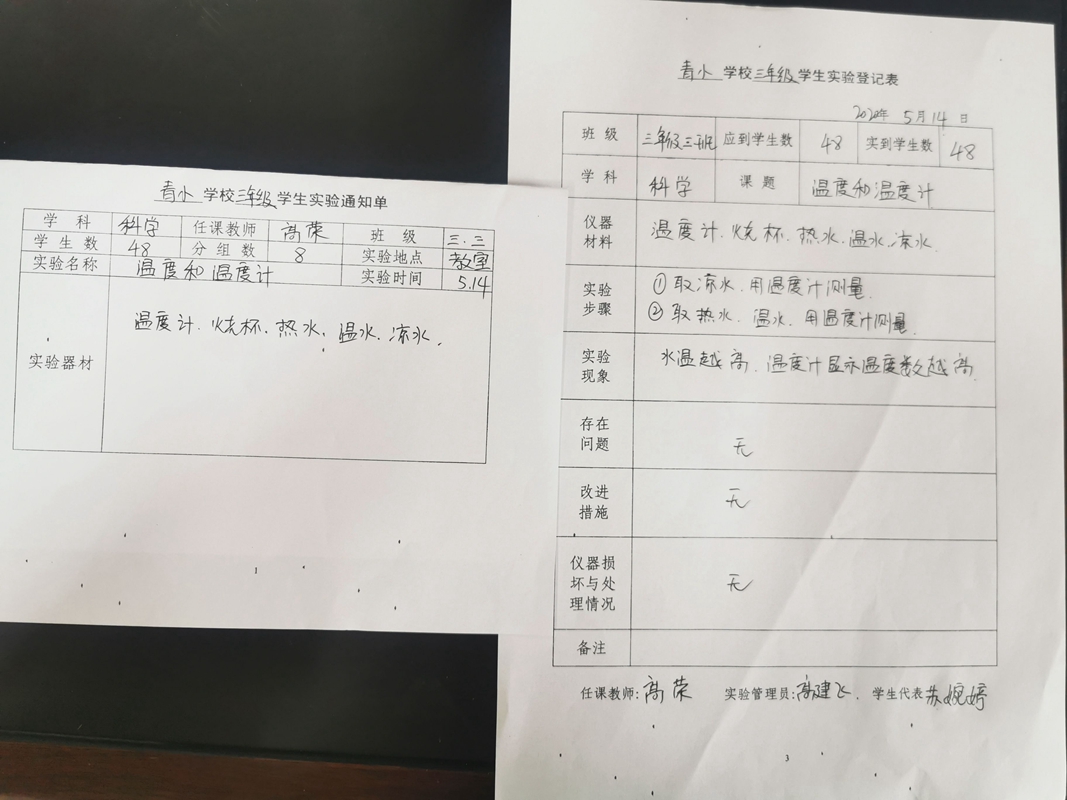 青小 学校三年级学生实验通知单
学科 科学 任课教师 高荣 班级 三.三
学生数 48 分组数 8 实验地点 教室
实验名称 温度和温度计 实验时间 5.14
实验器材 温度计.烧杯.热水.温水.凉水.
1
青小 学校三年级学生实验登记表
2020年 5月14日
班级 三年级三班 应到学生数 48 实到学生数 48
学科 科学 课题 温度和温度计
仪器材料 温度计.烧杯.热水.温水.凉水.
实验步骤 ①取凉水.用温度计测量.
②取热水.温水.用温度计测量.
实验现象 水温越高.温度计显示温度数越高.
存在问题 无
改进措施 无
仪器损坏与处理情况 无
备注
任课教师:高荣 实验管理员:高建飞. 学生代表 苏婉婷
3